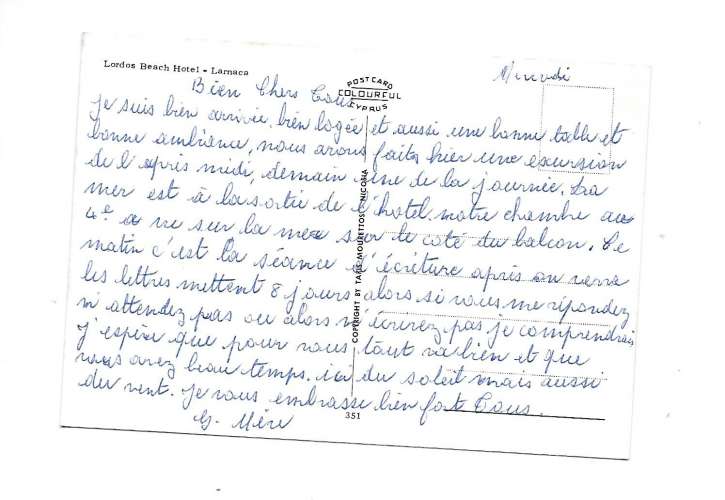 Lordos Beach Hotel - Larnaca
POSTCARD
COLOURFUL
CYPRUS
Mercredi
Bien Chers Tous
je suis bien arrivée, bien logée et aussi une bonne table et
bonne ambiance, nous avons faites hier une excursion
de l'après midi, demain une de la journée. La
mer est à la sortie de l'hotel. notre chambre au
4e a vue sur la mer sur le coté du balcon. Ce
matin c'est la séance d'écriture après on verra
les lettres mettent 8 jours alors si vous me répondez
n'attendez pas ou alors n'écrivez pas je comprendrais
J'espère que pour vous tout va bien et que
vous avez beau temps. ici du soleil mais aussi
du vent. je vous embrasse bien fort Tous.
G. Mère
COPYRIGHT BY TAKIS MOUKETTOSO NICOSIA
351